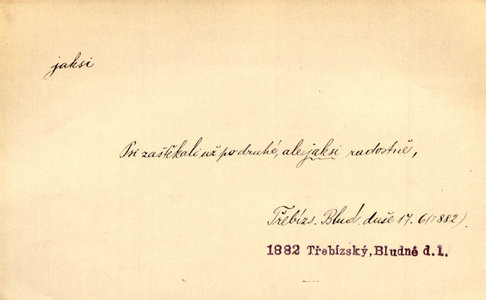 jaksi
Psi zaštěkali už podruhé, ale jaksi radostně,
Třebízs. Blud. duše 17. 6 (1882).
1882 Třebízský, Bludné d.1.